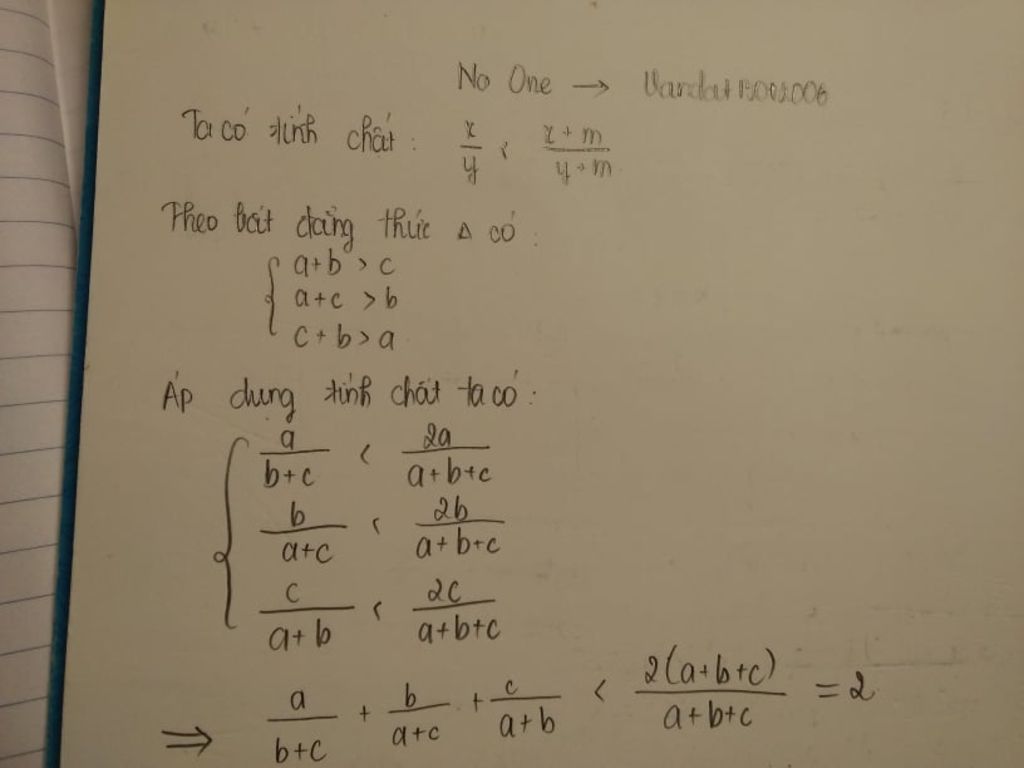 No One → Vandat12002006
Ta có tính chất: x/y < (x+m)/(y+m)
Theo bất đẳng thức Δ có:
a+b > c
a+c > b
c+b > a
Áp dụng tính chất ta có:
a/(b+c) < 2a/(a+b+c)
b/(a+c) < 2b/(a+b+c)
c/(a+b) < 2c/(a+b+c)
⇒ a/(b+c) + b/(a+c) + c/(a+b) < 2(a+b+c)/(a+b+c) = 2